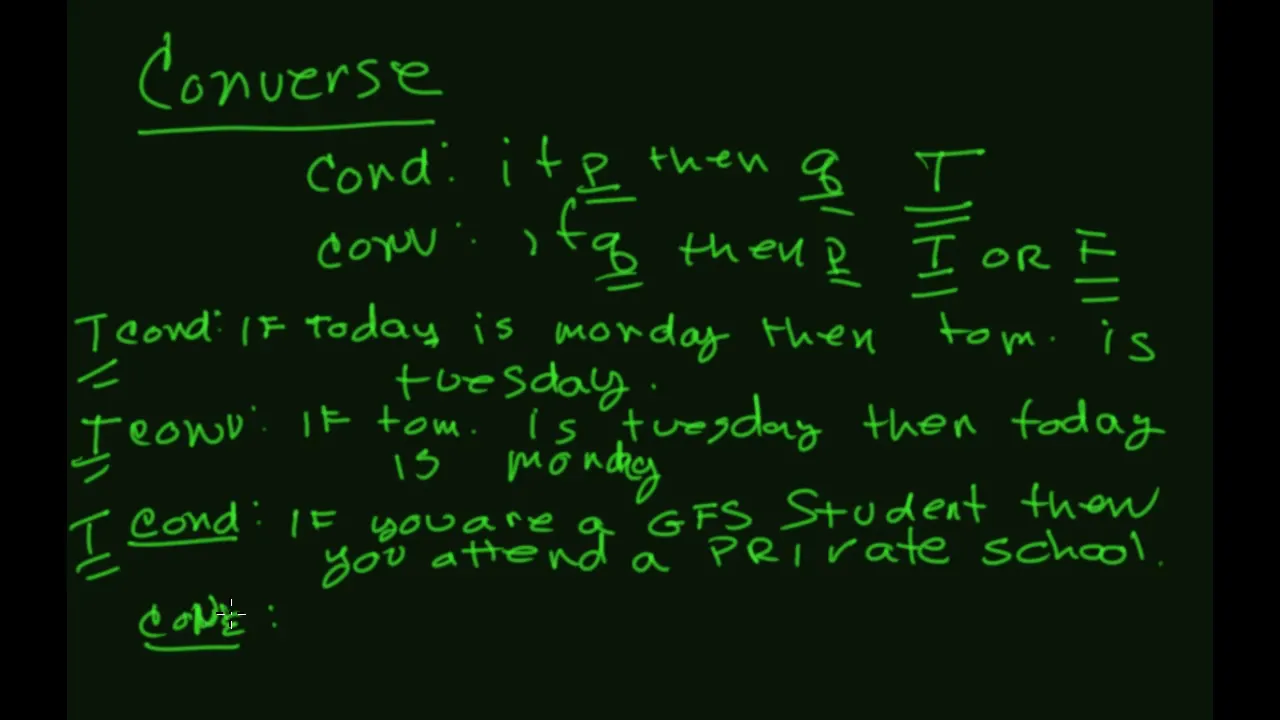 Converse
Cond: if p then q T
conv: if q then p T OR F
T cond: IF today is monday then tom. is
tuesday.
T conv: IF tom. is tuesday then today
is monday
T Cond: IF you are a GFS Student then
you attend a PRivate school.
: